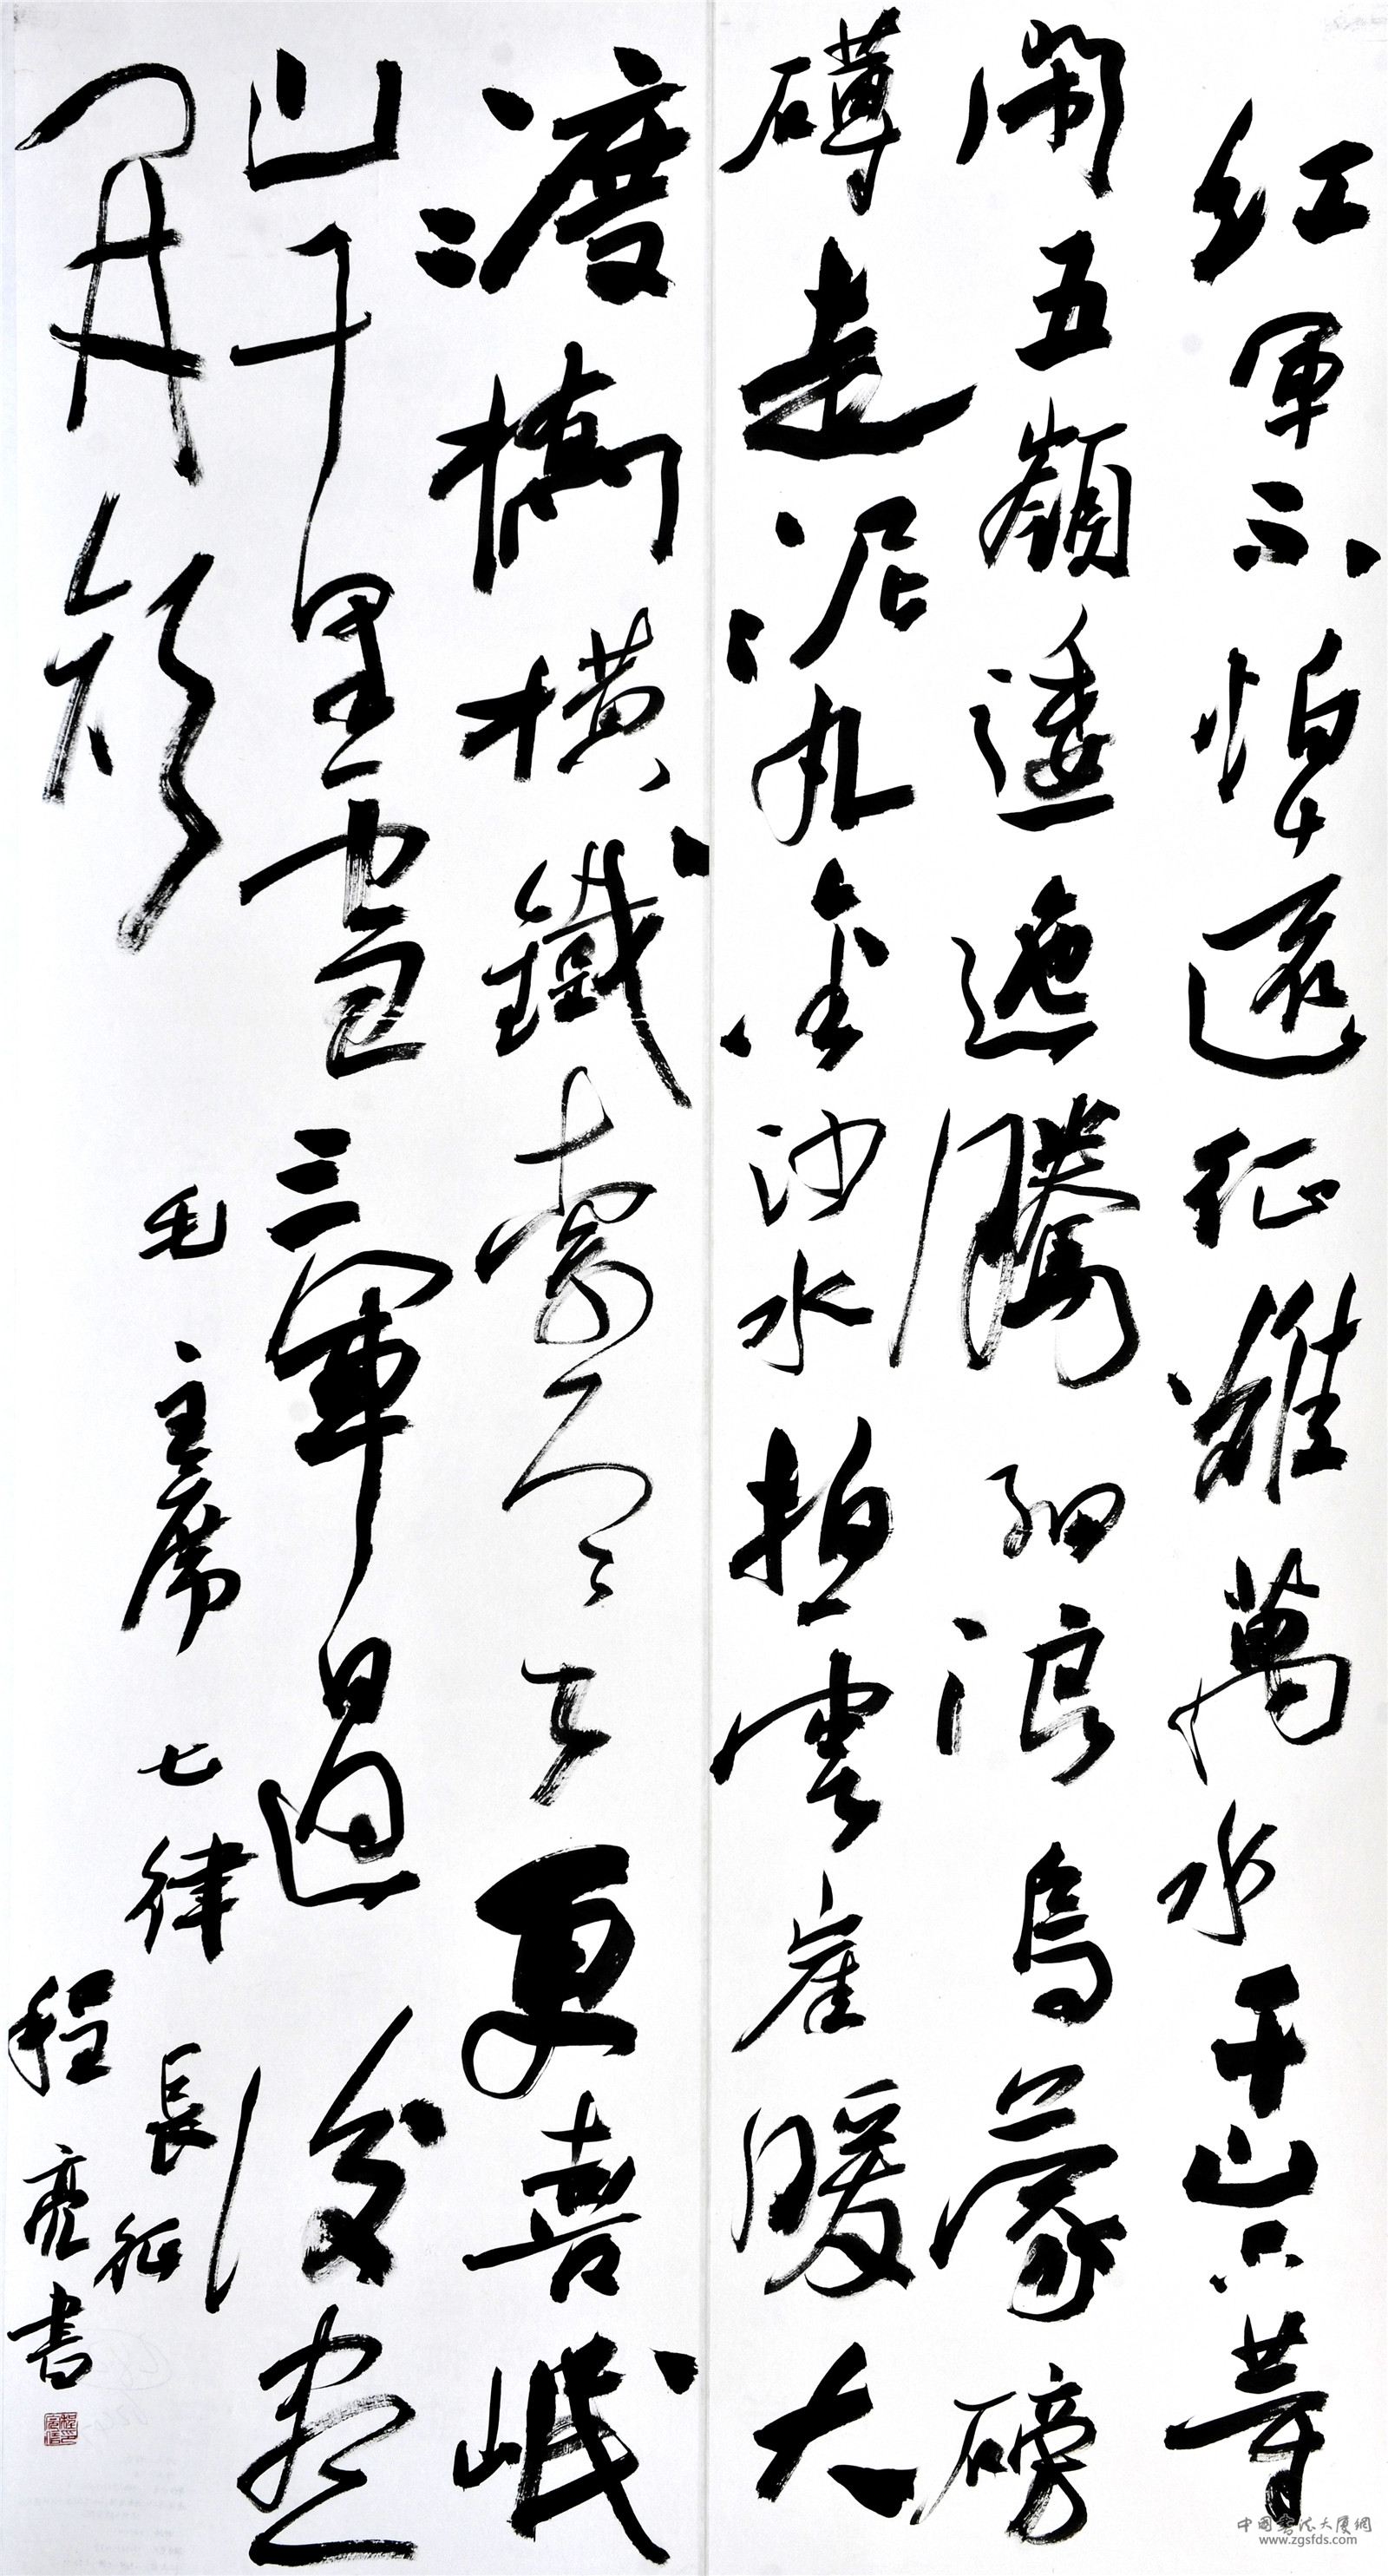 紅軍不怕遠征難萬水千山只等
閑五嶺逶迤騰細浪烏蒙磅
礴走泥丸金沙水拍雲崖暖大
渡橋橫鐵索寒更喜岷
山千里雪三軍過後盡
開顏
毛主席七律長征
程亮書
中國書法大廈網
www.zgsfds.com